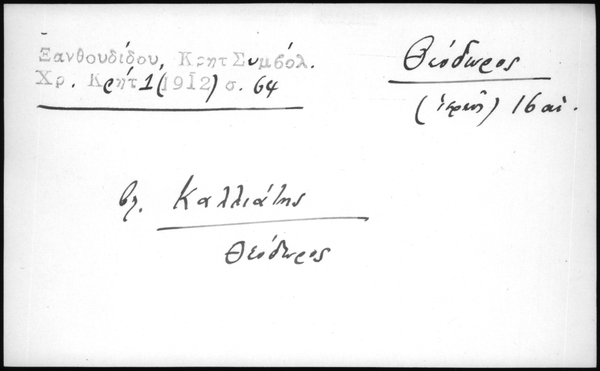 Ξανθουδίδου, Κρητ Συμβόλ.
Χρ. Κρήτ 1 (1912) σ. 64
Θεόδωρος
(ἱερεὺς) 16 αἰ.
βλ. Καλλιάτης
Θεόδωρος